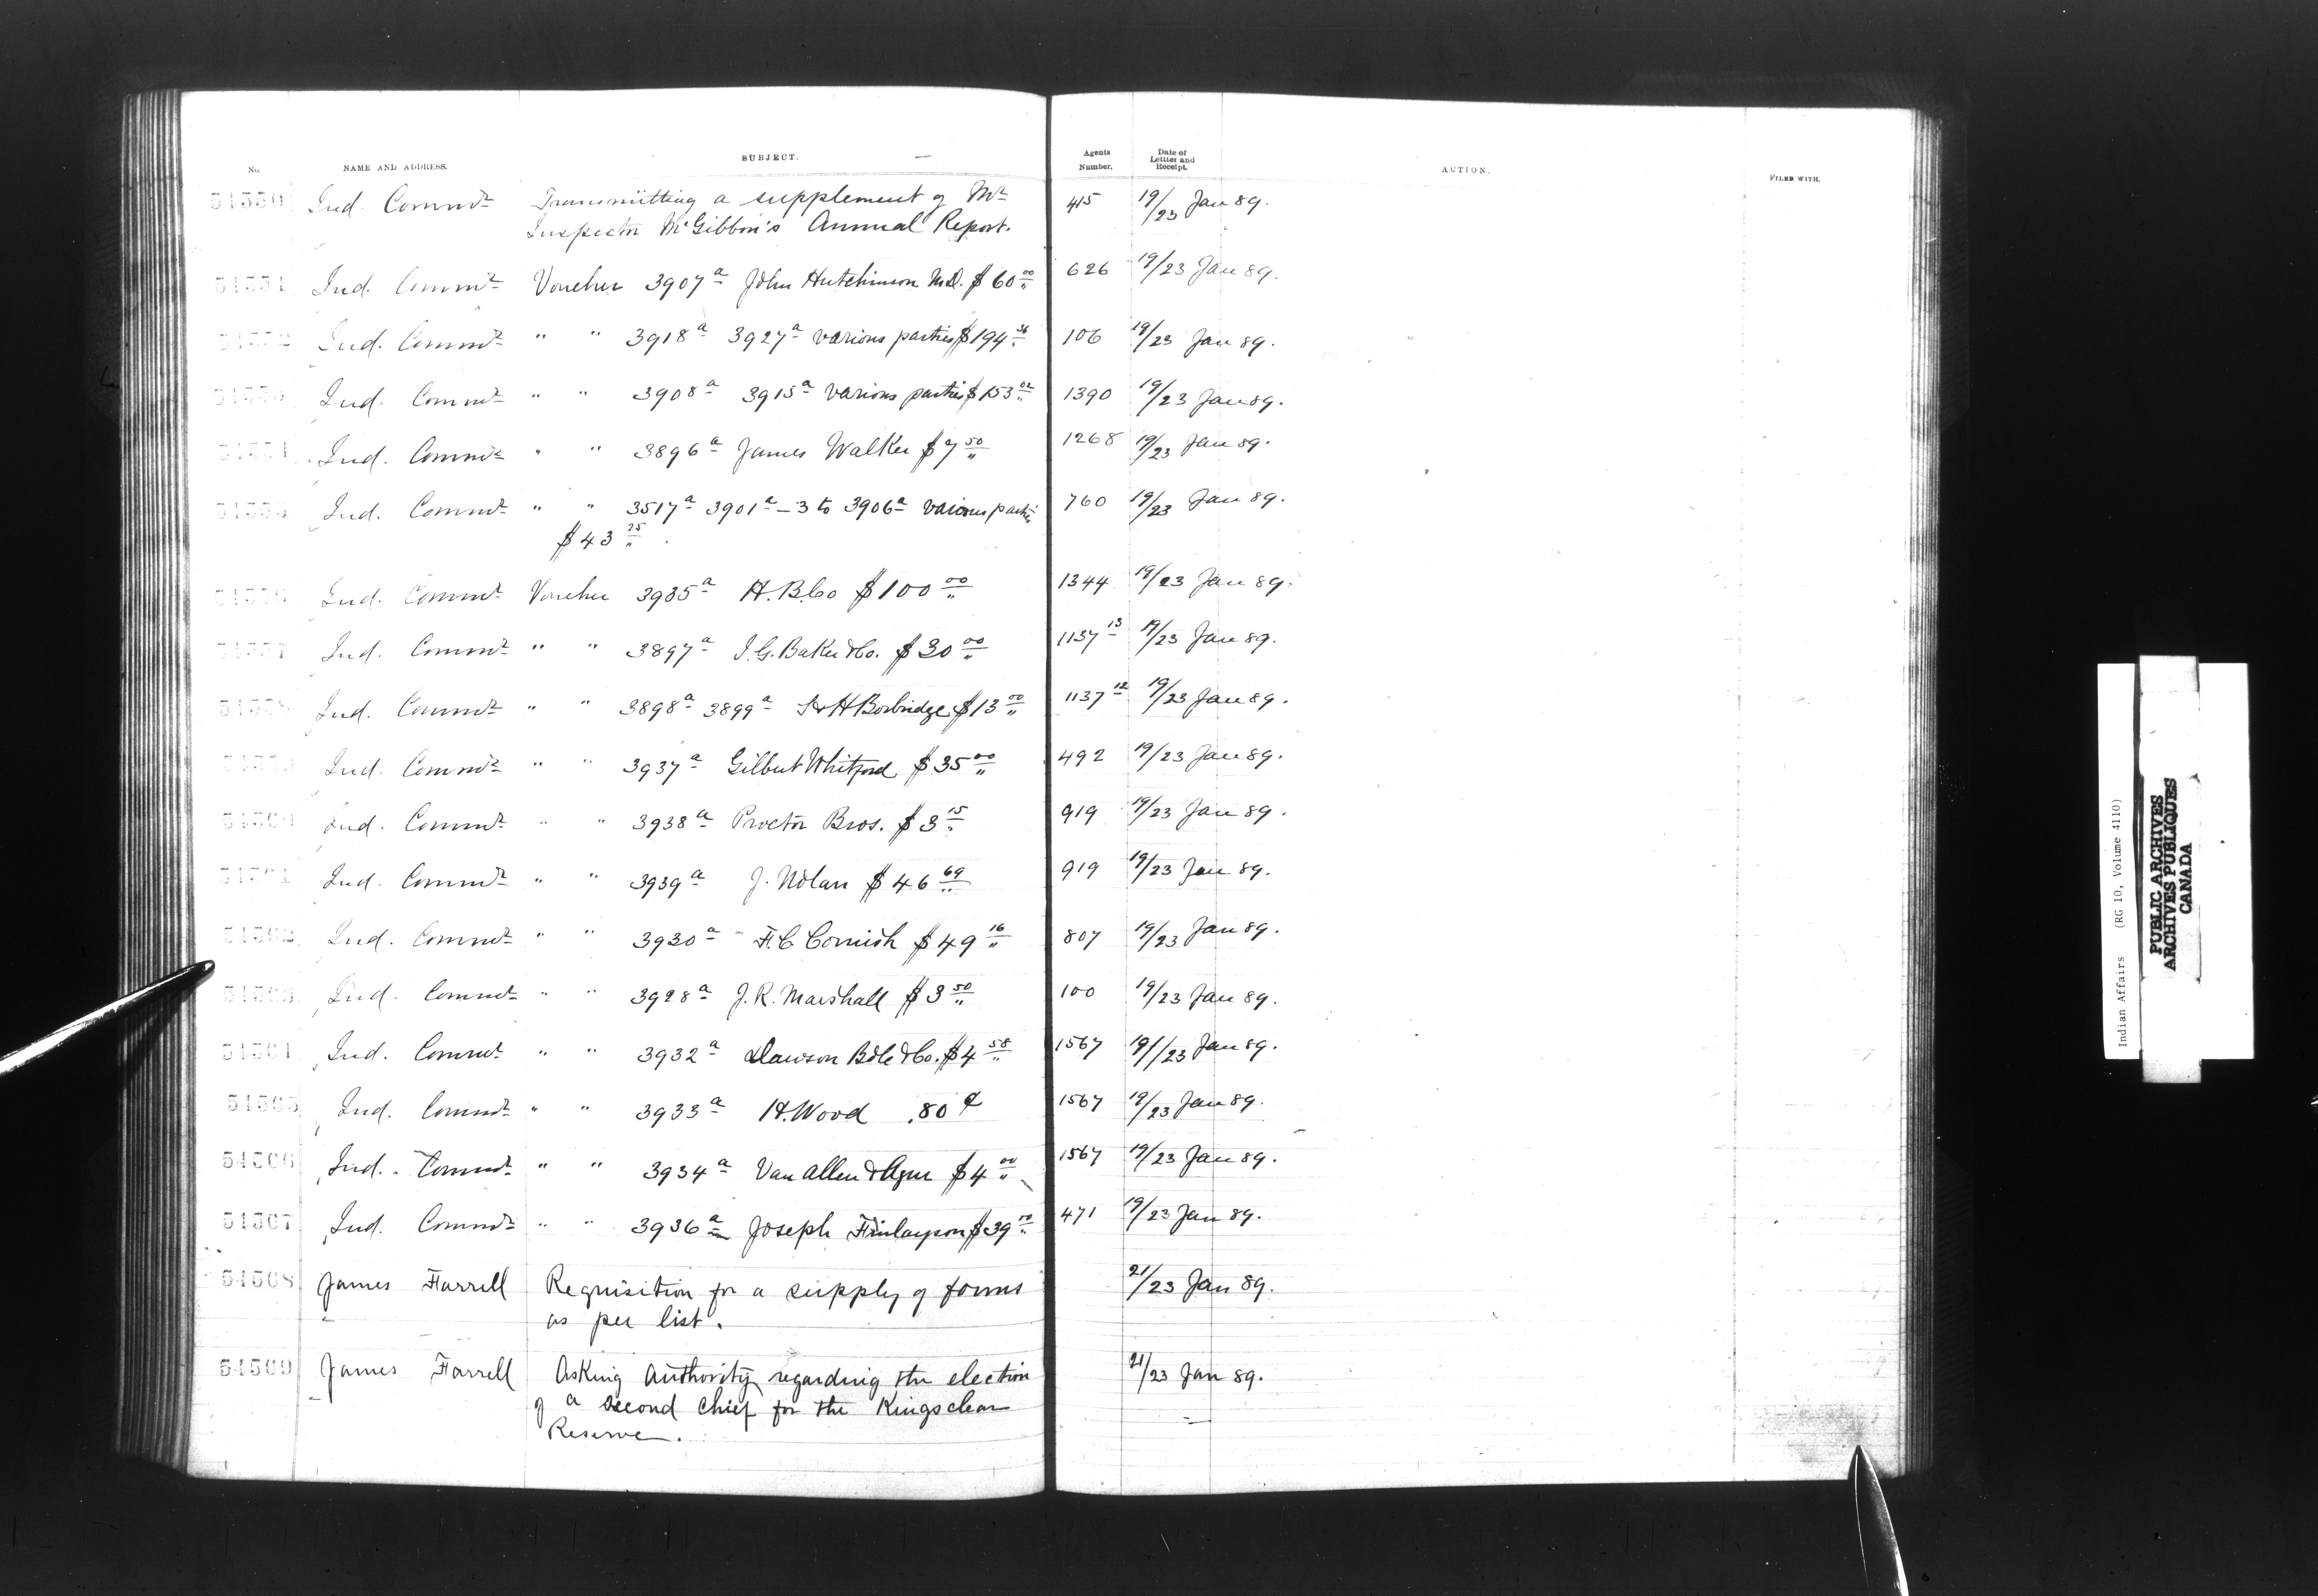 No. NAME AND ADDRESS. SUBJECT. Agents Number. Date of Letter and Receipt. ACTION. FILED WITH.
54550 Ind. Commr Transmitting a supplement of Mr 415 19/23 Jan 89.
Inspector McGibbon's Annual Report.
54551 Ind. Commr Voucher 3907a John Hutchinson M.D. $60.00 626 19/23 Jan 89.
54552 Ind. Commr " " 3918a 3927a various parties $194.36 106 19/23 Jan 89.
54553 Ind. Commr " " 3908a 3915a various parties $153.02 1390 19/23 Jan 89.
54554 Ind. Commr " " 3896a James Walker $7.50 1268 19/23 Jan 89.
54555 Ind. Commr " " 3517a 3901a–3 to 3906a various parties 760 19/23 Jan 89.
$43.25
54556 Ind. Commr Voucher 3935a H.B.Co $100.00 1344 19/23 Jan 89.
54557 Ind. Commr " " 3897a I.G. Baker & Co. $30.00 1137 13 19/23 Jan 89.
54558 Ind. Commr " " 3898a 3899a S & H Borbridge $13.00 1137 12 19/23 Jan 89.
54559 Ind. Commr " " 3937a Gilbert Whitford $35.00 492 19/23 Jan 89.
54560 Ind. Commr " " 3938a Proctor Bros. $3.15 919 19/23 Jan 89.
54561 Ind. Commr " " 3939a J. Nolan $46.69 919 19/23 Jan 89.
54562 Ind. Commr " " 3930a F.C Cornish $49.16 807 19/23 Jan 89.
54563 Ind. Commr " " 3928a J.R. Marshall $3.50 100 19/23 Jan 89.
54564 Ind. Commr " " 3932a Dawson Bole & Co. $4.58 1567 19/23 Jan 89.
54565 Ind. Commr " " 3933a H. Wood .80¢ 1567 19/23 Jan 89.
54566 Ind. Commr " " 3934a Van Allen & Agur $4.00 1567 19/23 Jan 89.
54567 Ind. Commr " " 3936a Joseph Finlayson $39 471 19/23 Jan 89.
54568 James Farrell Requisition for a supply of forms 21/23 Jan 89.
as per list.
54569 James Farrell Asking Authority regarding the election 21/23 Jan 89.
of a second Chief for the Kingsclear
Reserve.
Indian Affairs (RG 10, Volume 4110)
PUBLIC ARCHIVES
ARCHIVES PUBLIQUES
CANADA